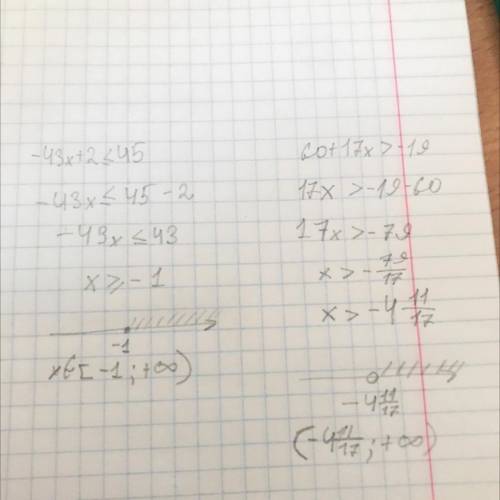 -43x+2≤45
-43x≤45-2
-43x≤43
x≥-1
-1
x∈[-1;+∞)
60+17x>-19
17x>-19-60
17x>-79
x>-79/17
x>-4 11/17
-4 11/17
(-4 11/17;+∞)